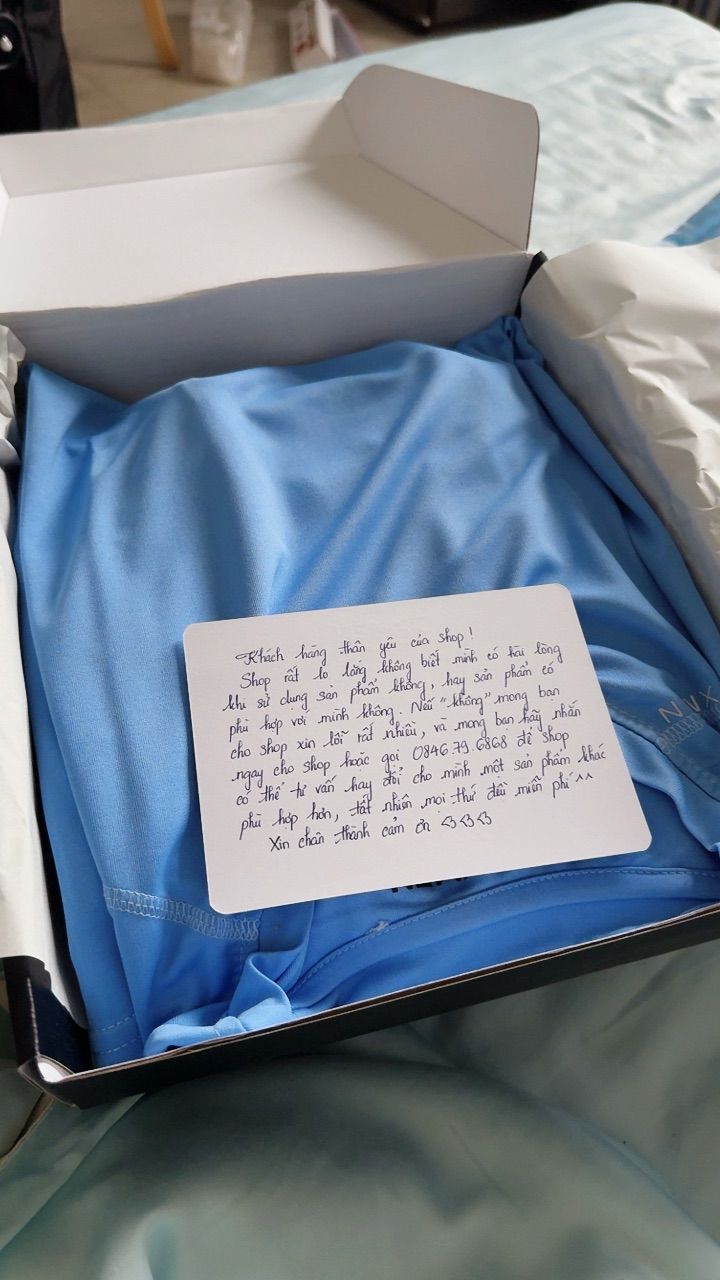 Khách hàng thân yêu của shop!
Shop rất lo lắng không biết mình có hài lòng
khi sử dụng sản phẩm không, hay sản phẩm có
phù hợp với mình không. Nếu "không" mong bạn
cho shop xin lỗi rất nhiều, và mong bạn hãy nhắn
ngay cho shop hoặc gọi 0846.79.6868 để shop
có thể tư vấn hay đổi cho mình một sản phẩm khác
phù hợp hơn, tất nhiên mọi thứ đều miễn phí ^^
Xin chân thành cảm ơn <3<3<3
NVX